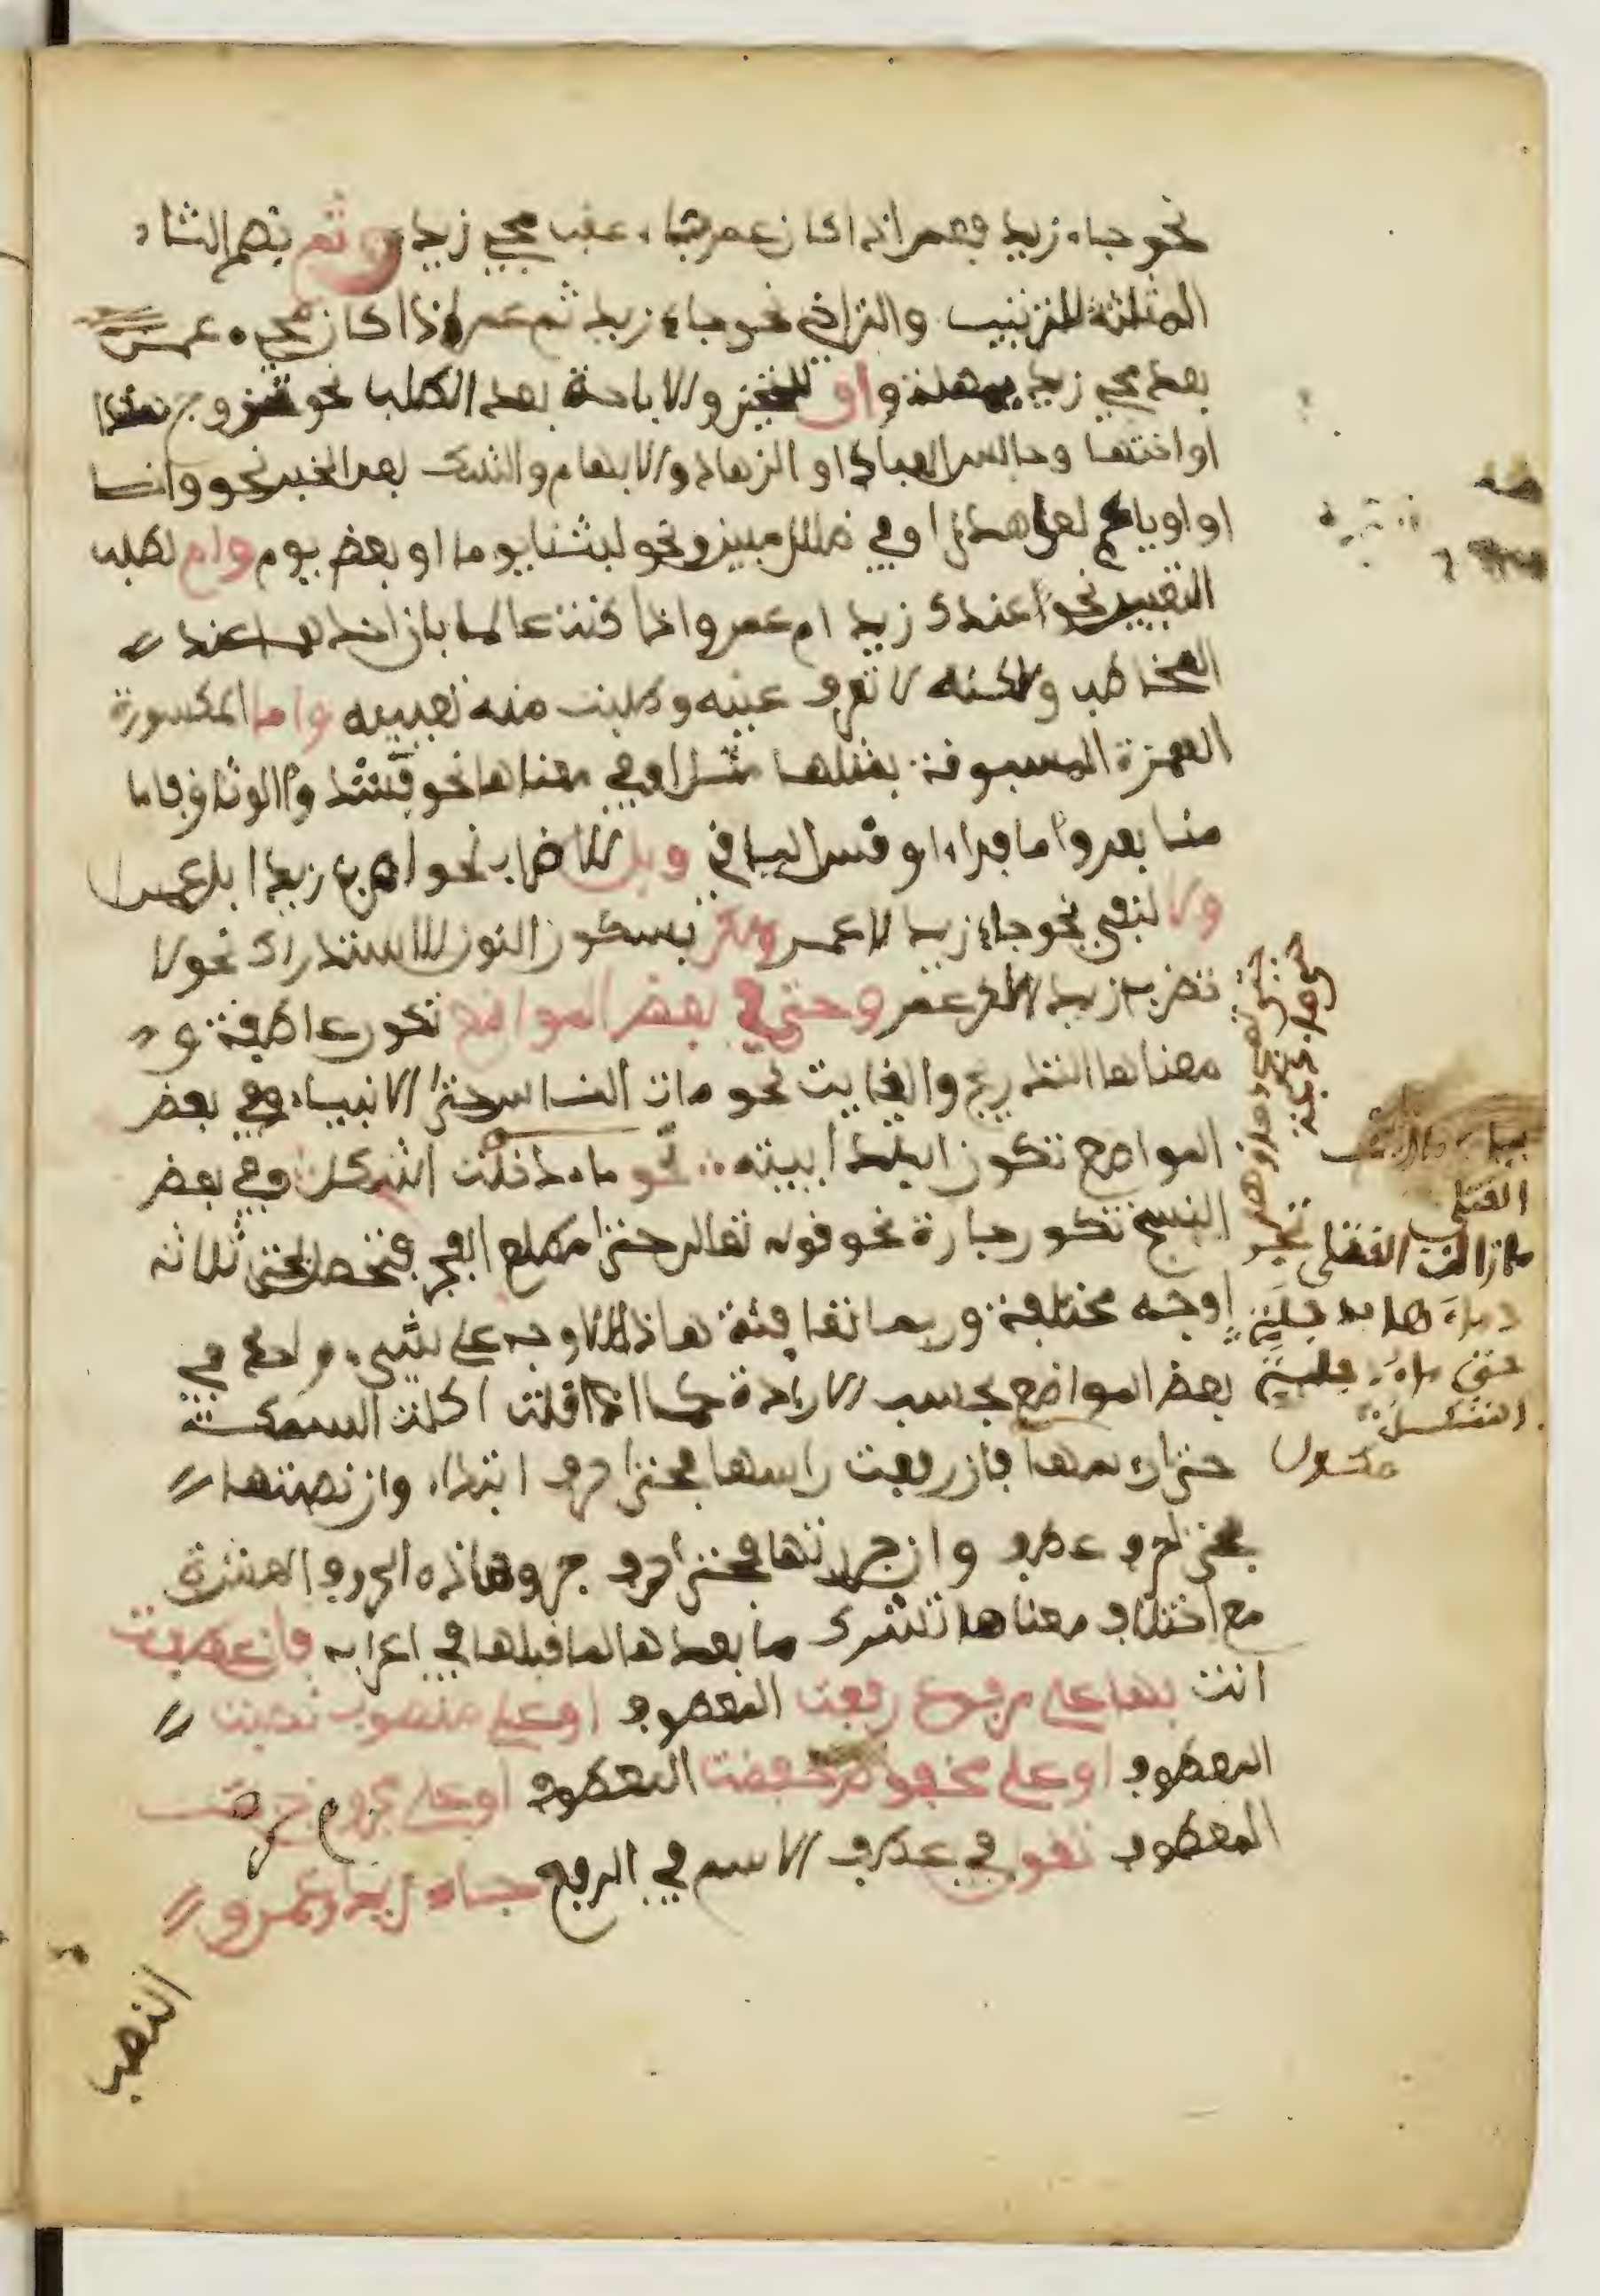 نحو جاء زيد فعمر اذا كان عمر جاء عقب مجيء زيد وثم بضم الثاء
المثلثة للترتيب والتراخي نحو جاء زيد ثم عمر اذا كان مجيء عمر
بعد مجيء زيد بمهلة واو للتخيير والاباحة بعد الطلب نحو تزوج هندا
او اختها وجالس العباد او الزهاد والابهام والشك بعد الخبر نحو وانا
او اوياكم لعلى هدى او في ضلل مبين ونحو لبثنا يوما او بعض يوم وام لطلب
التعيين نحو اعندك زيد ام عمر واذا كنت عالما بان احدهما عند
المخاطب ولكنه لا تعرف عينه وطلبت منه تعيينه واما المكسورة
الهمزة المسبوقة بمثلها مثل او في معناها نحو فشدوا الوثاق فاما
منا بعد واما فداء او قس الباقي وبل للاضراب نحو اضرب زيدا بل عمرا
ولا لنفي نحو جاء زيد لا عمر ولكن بسكون النون للاستدراك نحو لا
تضرب زيدا لكن عمر وحتى في بعض المواضع تكون عاطفة و
معناها التدريج والغايت نحو مات الناس حتى الانبياء وفي بعض
المواضع تكون ابتدا ايية نحو ماء دجلت اشكل وفي بعض
النسخ تكون جارة نحو قوله تعالى حتى مطلع الفجر فتحصل لحتى ثلاثة
اوجه مختلفة وربما تعاقبت هاذه الاوجه على شيء واحد في
بعض المواضع بحسب الارادة كما اذا قلت اكلت السمكة
حتى راسها فان رفعت راسها فحتى حرف ابتداء وان نصبتها
فحتى حرف عطف وان جررتها فحتى حرف جر وهاذه الحروف العشرة
مع اختلاف معناها تشرك ما بعدها لما قبلها في اعرابه فان عطفت
انت بها على مرفوع رفعت المعطوف او على منصوب نصبت
المعطوف او على مخفوض خفضت المعطوف او على مجزوم جزمت
المعطوف تقول في عطف الاسم في الرفع جاء زيد وعمرو
النصب
القتلى
مازالت القتلى تمج
دماءها بدجلة
حتى ماء دجلة
اشكل